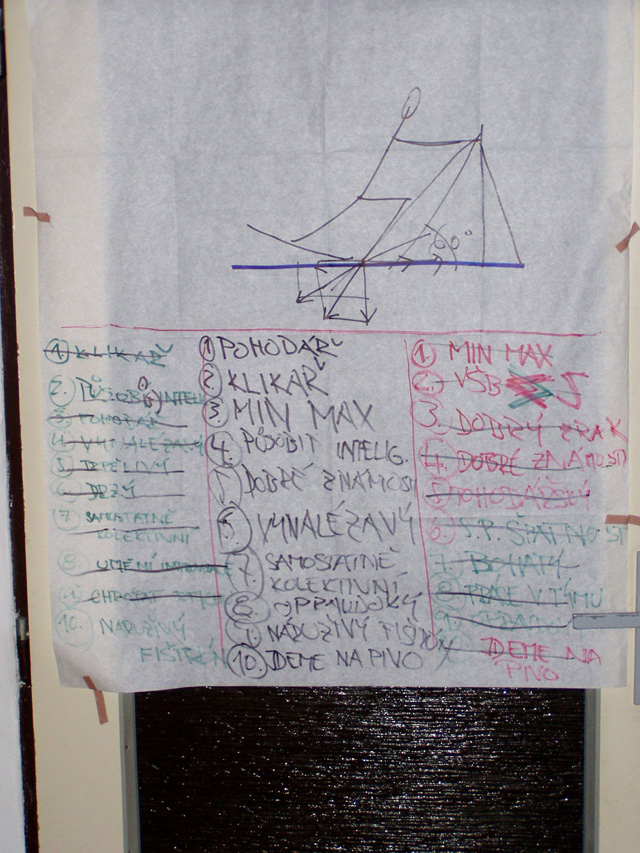 60°
1. KLIKAŘ
2. PŮSOBIT INTELI
3. POHODÁŘ
4. VYNALÉZAVÝ
5. TRPĚLIVÝ
6. DRZÝ
7. SAMOSTATNĚ
KOLEKTIVNÍ
8. UMĚNÍ
9.
10. NÁRUŽIVÝ
FIŠTRÓN
1 POHODÁŘ
2. KLIKAŘ
3. MIN MAX
4. PŮSOBIT INTELIG.
5 DOBRÉ ZNÁMOSTI
6. VYNALÉZAVÝ
7. SAMOSTATNĚ
KOLEKTIVNÍ
8.
9. NÁRUŽIVÝ FIŠTRÓN
10. JDEME NA PIVO
1. MIN MAX
2. VŠB
3. DOBRÝ ZRAK
4. DOBRÉ ZNÁMOSTI
5 POHODÁŘSKÝ
6. S.P. ŠŤATNOST
7. BOHATÝ
8. PRÁCE V TÝMU
9.
JDEME NA
PIVO